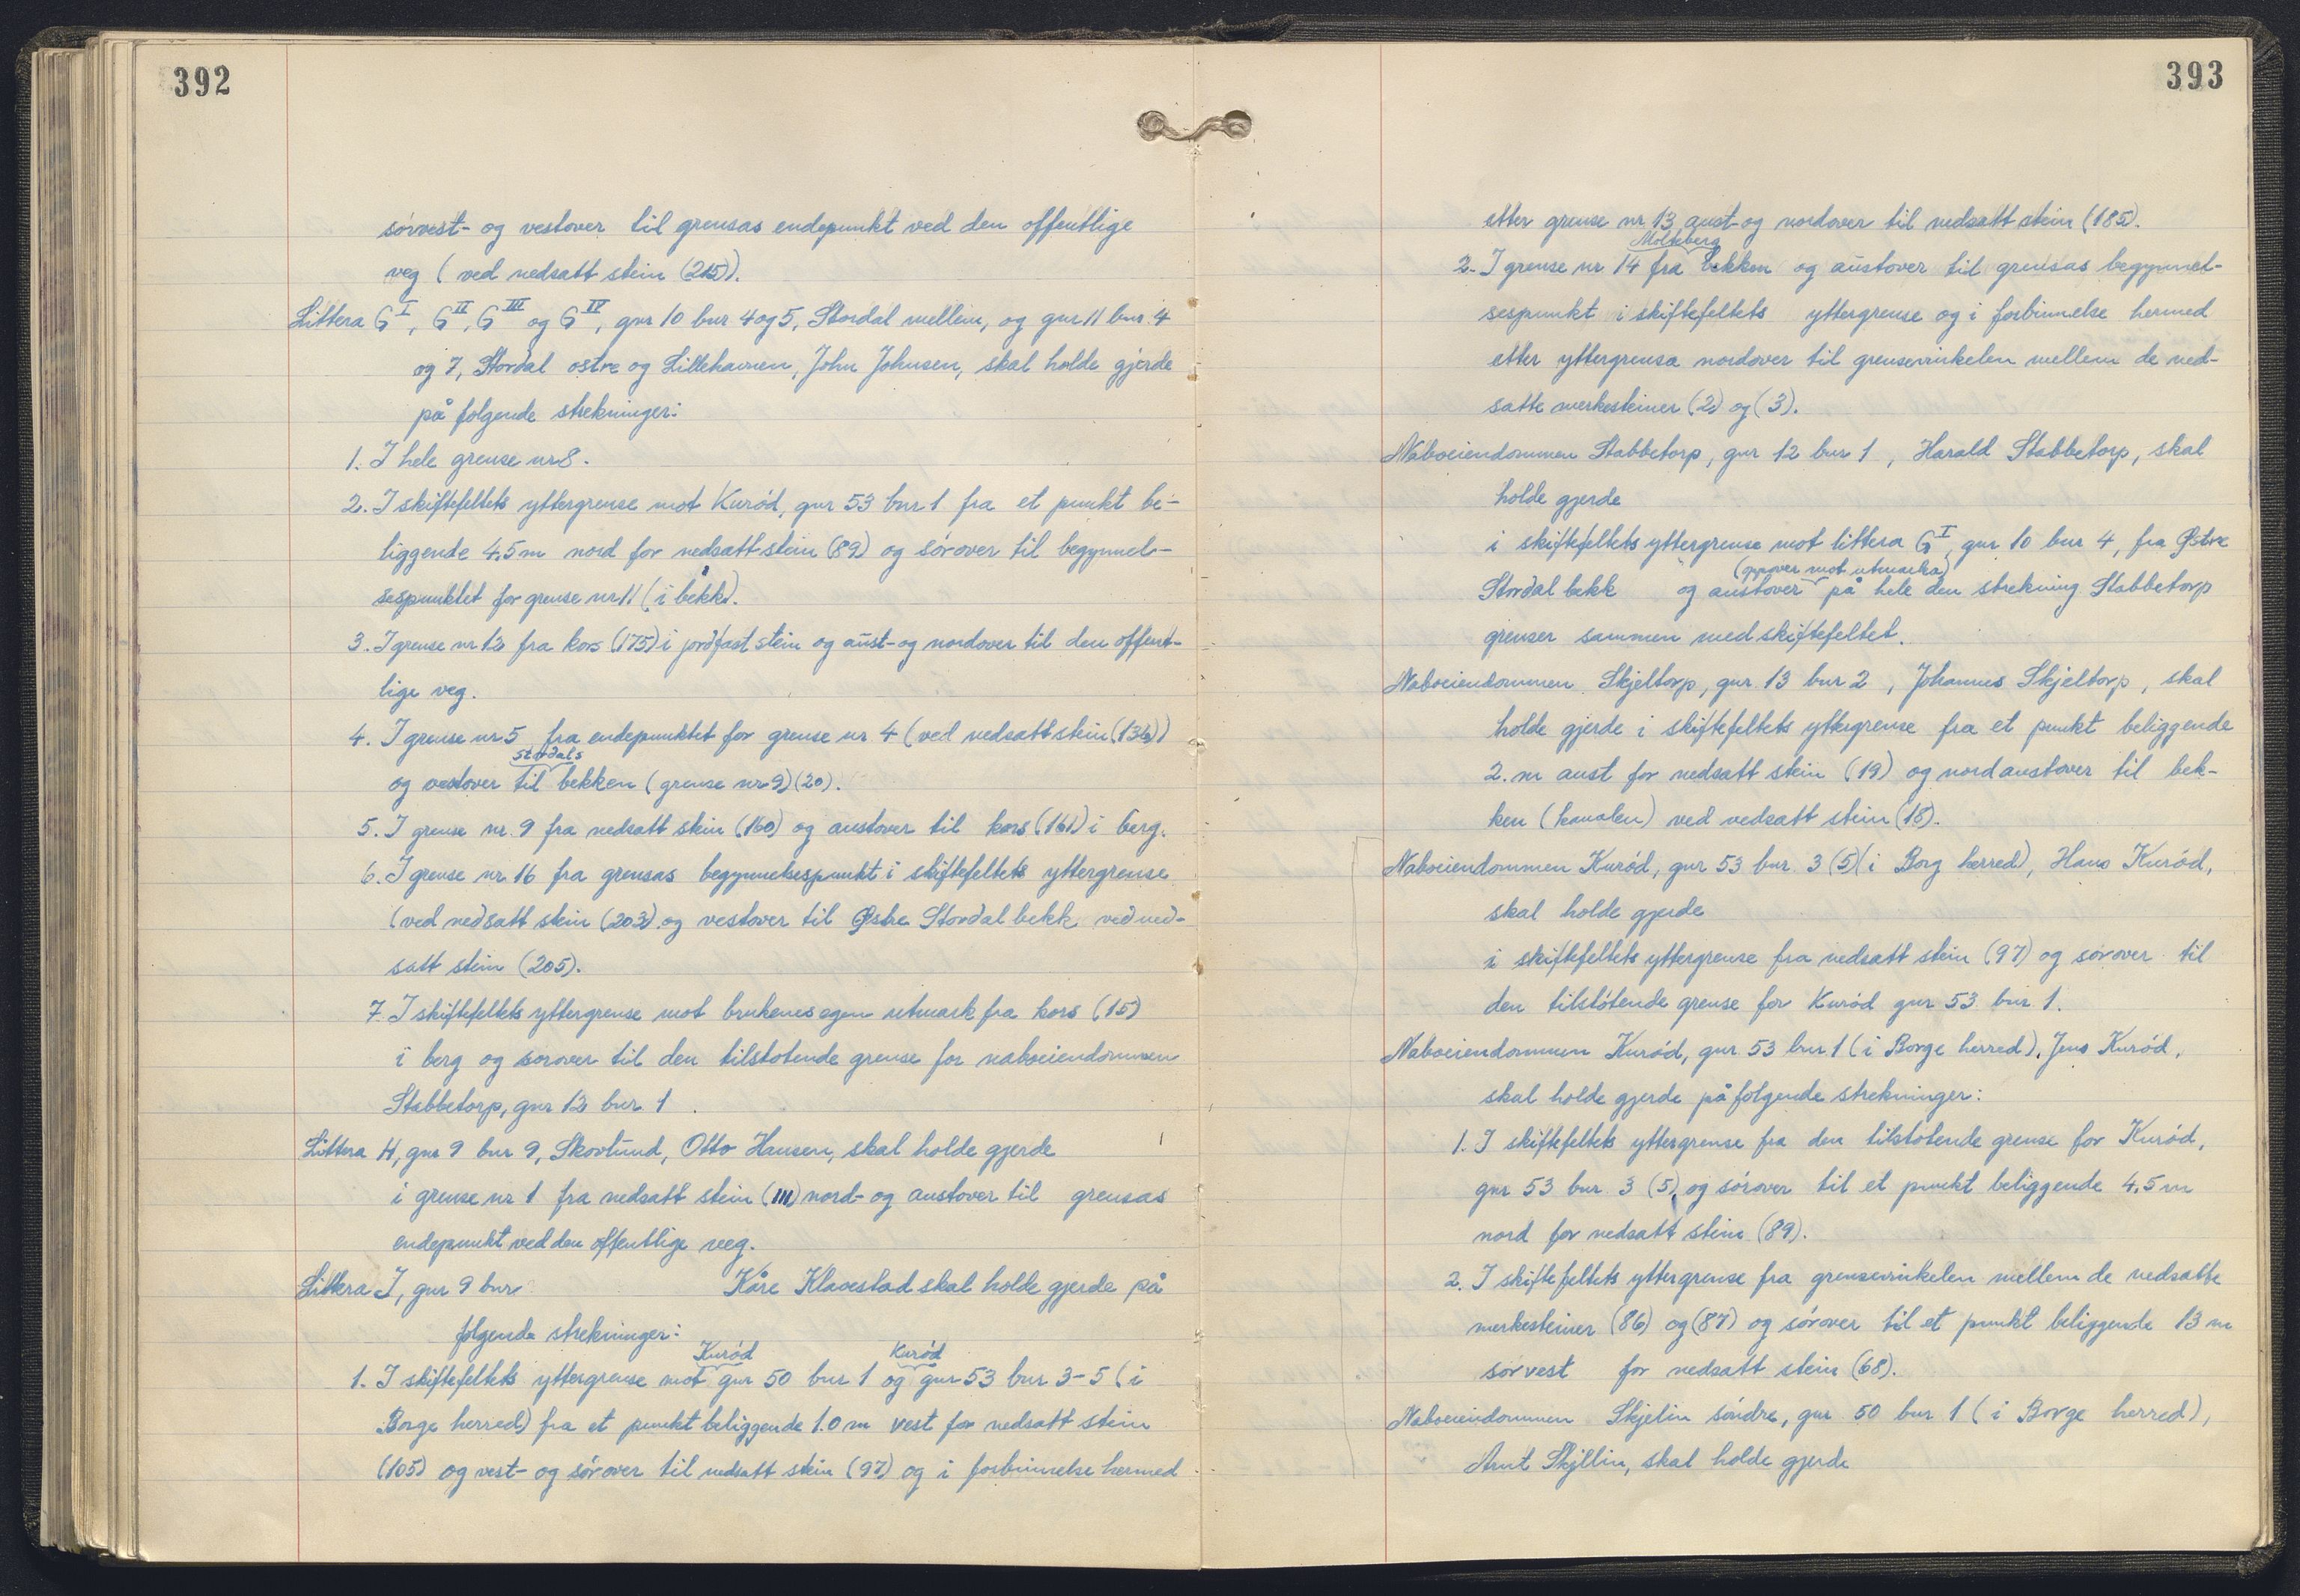 392
sørvest- og vestover til grensas endepunkt ved den offentlige
veg (ved nedsatt stein (215)).
Littera G I, G II, G III og G IV, gnr 10 bnr 4 og 5, Stordal mellem, og gnr 11 bnr. 4
og 7, Stordal østre og Lillehaven, John Johnsen, skal holde gjerde
på følgende strekninger:
1. I hele grense nr 8.
2. I skiftefeltets yttergrense mot Kurød, gnr 53 bnr 1 fra et punkt be-
liggende 4,5 m nord for nedsatt stein (89) og sørover til begynnel-
sespunktet for grense nr 11 (i bekk).
3. I grense nr 12 fra kors (175) i jordfast stein og aust- og nordover til den offent-
lige veg.
4. I grense nr 5 fra endepunktet for grense nr 4 (ved nedsatt stein (136))
stordals
og vestover til bekken (grense nr 9) (20).
5. I grense nr. 9 fra nedsatt stein (160) og austover til kors (161) i berg.
6. I grense nr. 16 fra grensas begynnelsespunkt i skiftefeltets yttergrense
(ved nedsatt stein (203) og vestover til Østre Stordal bekk ved ned-
satt stein (205).
7. I skiftefeltets yttergrense mot brukenes egen utmark fra kors (15)
i berg og sørover til den tilstøtende grense for naboeiendommen
Stabbetorp, gnr 12 bnr 1.
Littera H, gnr 9 bnr 9, Skovlund, Otto Hansen, skal holde gjerde
i grense nr 1 fra nedsatt stein (111) nord- og austover til grensas
endepunkt ved den offentlige veg.
Littera I, gnr 9 bnr Kåre Klavestad skal holde gjerde på
følgende strekninger:
Kurød Kurød
1. I skiftefeltets yttergrense mot gnr 50 bnr 1 og gnr 53 bnr 3-5 (i
Borge herred) fra et punkt beliggende 1.0 m vest for nedsatt stein
(105) og vest- og sørover til nedsatt stein (97) og i forbinnelse hermed
393
etter grense nr 13 aust- og nordover til nedsatt stein (185).
Molteberg
2. I grense nr 14 fra bekken og austover til grensas begynnel-
sespunkt i skiftefeltets yttergrense og i forbinnelse hermed
etter yttergrensa nordover til grensevinkelen mellem de ned-
satte merkesteiner (2) og (3).
Naboeiendommen Stabbetorp, gnr 12 bnr 1, Harald Stabbetorp, skal
holde gjerde
i skiftefeltets yttergrense mot littera G I, gnr 10 bnr 4, fra Østre
(oppover mot utmarka)
Stordal bekk og austover på hele den strekning Stabbetorp
grenser sammen med skiftefeltet.
Naboeiendommen Skjeltorp, gnr 13 bnr 2, Johannes Skjeltorp, skal
holde gjerde i skiftefeltets yttergrense fra et punkt beliggende
2. m aust for nedsatt stein (19) og nordaustover til bek-
ken (kanalen) ved vedsatt stein (18).
Naboeiendommen Kurød, gnr 53 bnr. 3 (5) (i Borg herred), Hans Kurød,
skal holde gjerde
i skiftefeltets yttergrense fra nedsatt stein (97) og sørover til
den tilstøtende grense for Kurød gnr 53 bnr 1.
Naboeiendommen Kurød, gnr 53 bnr 1 (i Borge herred). Jens Kurød,
skal holde gjerde på følgende strekninger:
1. I skiftefeltets yttergrense fra den tilstøtende grense for Kurød,
gnr 53 bnr 3 (5) og sørover til et punkt beliggende 4,5 m
nord for nedsatt stein (89).
2. I skiftefeltets yttergrense fra grensevinkelen mellem de nedsatte
merkesteiner (86) og (87) og sørover til et punkt beliggende 13 m
sørvest for nedsatt stein (68).
Naboeiendommen Skjelin søndre, gnr 50 bnr 1 (i Borge herred),
Arnt Skjellin, skal holde gjerde